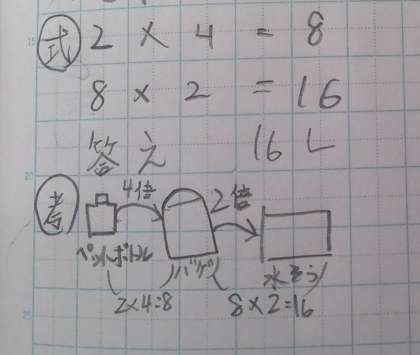 式 2 × 4 = 8
8 × 2 = 16
答え 16 L
考
4倍 2倍
ペットボトル バケツ 水そう
2×4=8 8×2=16